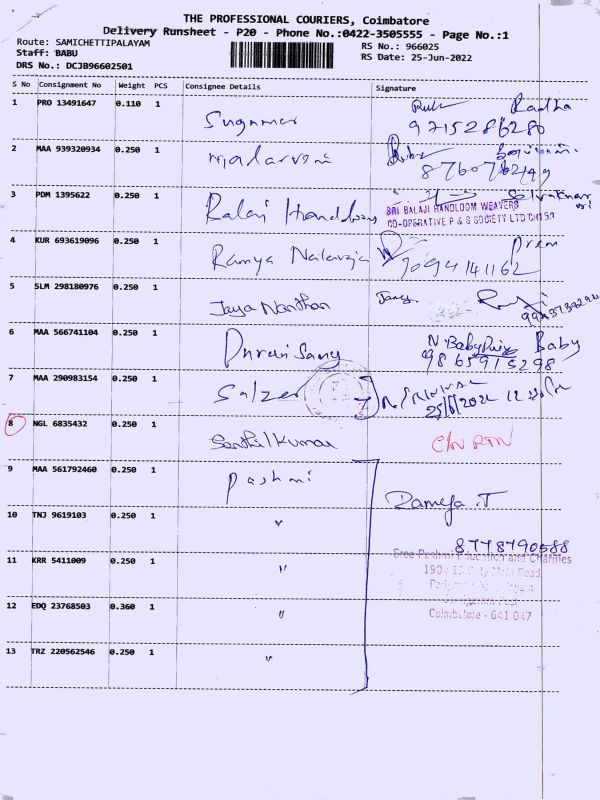 THE PROFESSIONAL COURIERS, Coimbatore
Delivery Runsheet - P20 - Phone No.:0422-3505555 - Page No.:1
Route: SAMICHETTIPALAYAM
Staff: BABU
DRS No.: DCJB96602501
RS No.: 966025
RS Date: 25-Jun-2022
S No Consignment No Weight PCS Consignee Details Signature
1 PRO 13491647 0.110 1 Radha
9715286280
2 MAA 939320934 0.250 1
3 PDM 1395622 0.250 1 Balaji Handlooms
SRI BALAJI HANDLOOM WEAVERS
CO-OPERATIVE P & S SOCIETY LTD CH153
4 KUR 693619096 0.250 1 Ramya Prem
9094141162
5 SLM 298180976 0.250 1 Jaya Nanthan
6 MAA 566741104 0.250 1 N Baby Baby
9865915298
7 MAA 290983154 0.250 1 Salzer
25/6/2022
8 NGL 6835432 0.250 1 Senthil Kumar C/N RTN
9 MAA 561792460 0.250 1 Pashmi Rameja T
10 TNJ 9619103 0.250 1 "
8778790588
11 KRR 5411009 0.250 1 "
Main Road
12 EDQ 23768503 0.360 1 "
Coimbatore - 641 047
13 TRZ 220562546 0.250 1 "